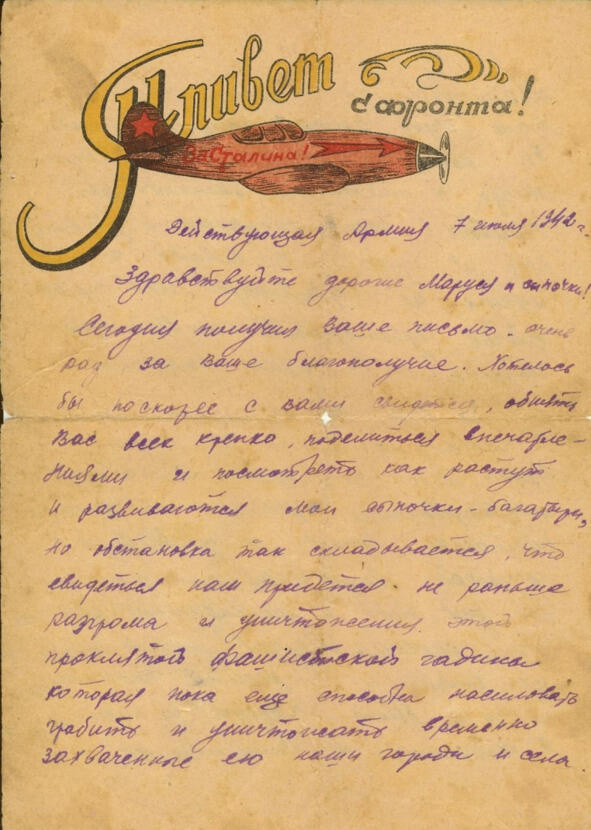 Привет
с фронта!
За Сталина!
Действующая Армия 7 июля 1942 г.
Здравствуйте дорогие Маруся и сыночки!
Сегодня получил ваше письмо. очень
рад за ваше благополучие. Хотелось
бы поскорее с вами свидется, обнять
Вас всех крепко, поделиться впечатле-
ниями и посмотреть как растут
и развиваются мои сыночки-багатыри,
но обстановка так складывается, что
свидеться нам придется не раньше
разгрома и уничтожения этой
проклятой фашистской гадины
которая пока еще способна насиловать
грабить и уничтожать временно
захваченные ею наши города и села